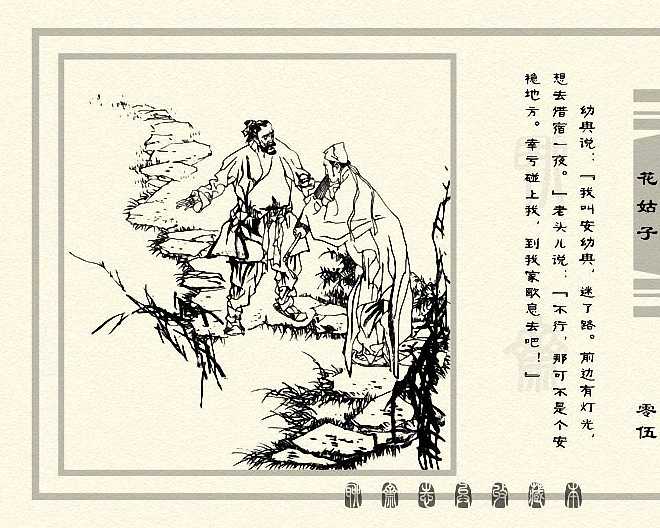 幼典说：“我叫安幼典，迷了路。前边有灯光，
想去借宿一夜。”老头儿说：“不行，那可不是个安
稳地方。幸亏碰上我，到我家歇息去吧！”
花姑子
零伍